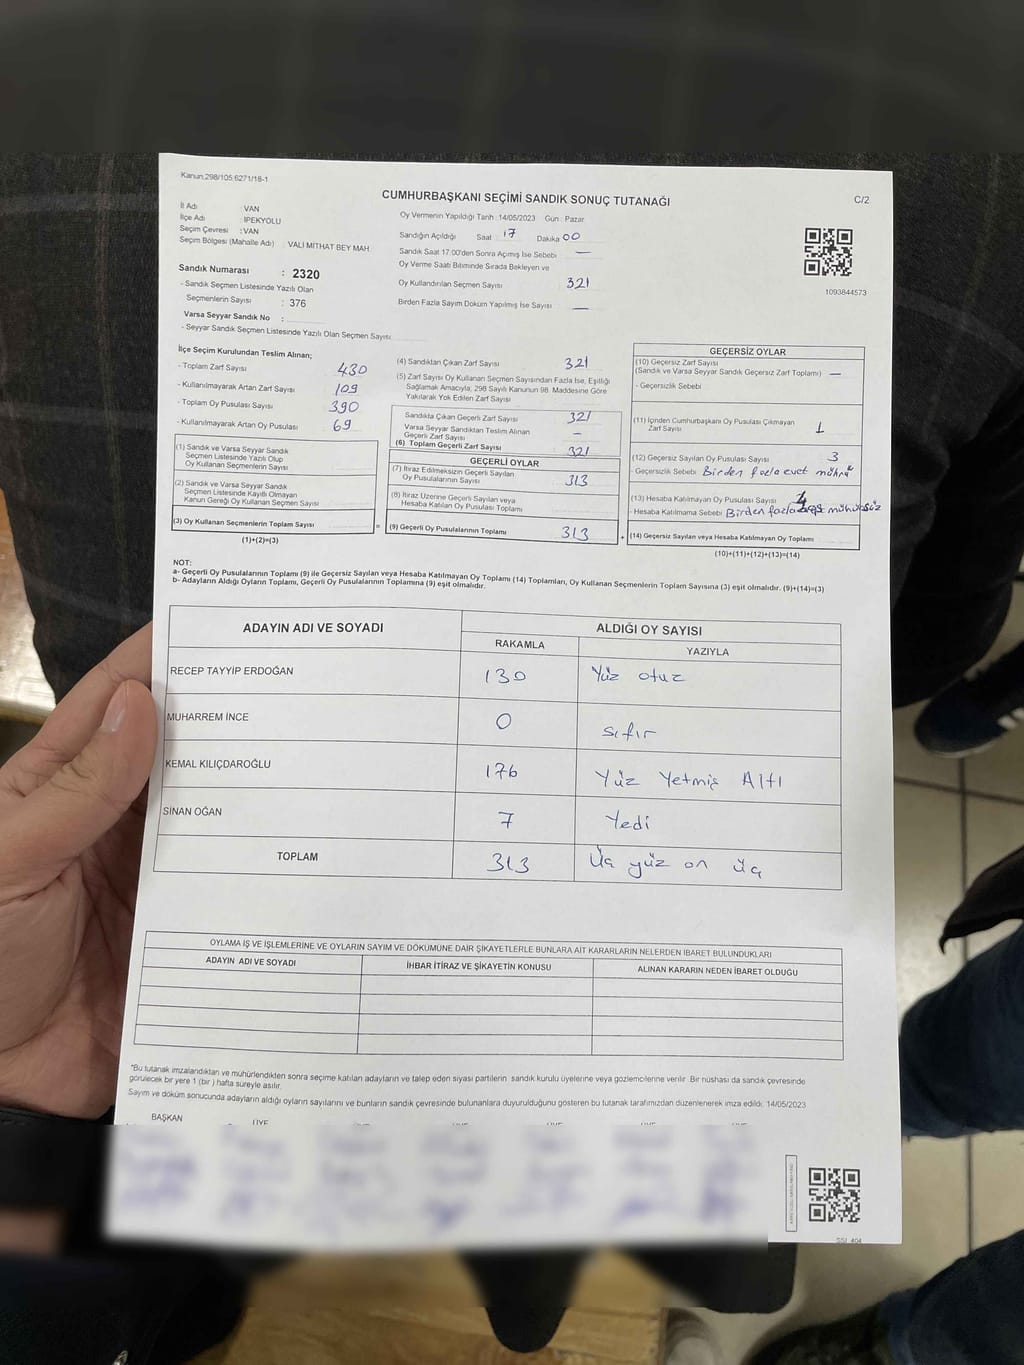 Kanun:298/105;6271/18-1
CUMHURBAŞKANI SEÇİMİ SANDIK SONUÇ TUTANAĞI
C/2
İl Adı : VAN
İlçe Adı : İPEKYOLU
Seçim Çevresi : VAN
Seçim Bölgesi (Mahalle Adı) : VALİ MİTHAT BEY MAH.
Sandık Numarası : 2320
- Sandık Seçmen Listesinde Yazılı Olan
Seçmenlerin Sayısı : 376
Varsa Seyyar Sandık No :
- Seyyar Sandık Seçmen Listesinde Yazılı Olan Seçmen Sayısı:
Oy Vermenin Yapıldığı Tarih :14/05/2023 Gün : Pazar
Sandığın Açıldığı Saat 17 Dakika 00
Sandık Saat 17:00'den Sonra Açımış İse Sebebi —
Oy Verme Saati Bitiminde Sırada Bekleyen ve
Oy Kullandırılan Seçmen Sayısı 321
Birden Fazla Sayım Döküm Yapılmış İse Sayısı —
1093844573
İlçe Seçim Kurulundan Teslim Alınan;
- Toplam Zarf Sayısı 430
- Kullanılmayarak Artan Zarf Sayısı 109
- Toplam Oy Pusulası Sayısı 390
- Kullanılmayarak Artan Oy Pusulası 69
(1) Sandık ve Varsa Seyyar Sandık
Seçmen Listesinde Yazılı Olup
Oy Kullanan Seçmenlerin Sayısı
(2) Sandık ve Varsa Seyyar Sandık
Seçmen Listesinde Kayıtlı Olmayan
Kanun Gereği Oy Kullanan Seçmen Sayısı
(3) Oy Kullanan Seçmenlerin Toplam Sayısı
(1)+(2)=(3)
=
(4) Sandıktan Çıkan Zarf Sayısı 321
(5) Zarf Sayısı Oy Kullanan Seçmen Sayısından Fazla İse, Eşitliği
Sağlamak Amacıyla, 298 Sayılı Kanunun 98. Maddesine Göre
Yakılarak Yok Edilen Zarf Sayısı
Sandıkta Çıkan Geçerli Zarf Sayısı 321
Varsa Seyyar Sandıktan Teslim Alınan
Geçerli Zarf Sayısı –
(6) Toplam Geçerli Zarf Sayısı 321
GEÇERLİ OYLAR
(7) İtiraz Edilmeksizin Geçerli Sayılan
Oy Pusulalarının Sayısı 313
(8) İtiraz Üzerine Geçerli Sayılan veya
Hesaba Katılan Oy Pusulası Toplamı
(9) Geçerli Oy Pusulalarının Toplamı 313
+
GEÇERSİZ OYLAR
(10) Geçersiz Zarf Sayısı
(Sandık ve Varsa Seyyar Sandık Geçersiz Zarf Toplamı) —
- Geçersizlik Sebebi
(11) İçinden Cumhurbaşkanı Oy Pusulası Çıkmayan
Zarf Sayısı 1
(12) Geçersiz Sayılan Oy Pusulası Sayısı 3
- Geçersizlik Sebebi Birden fazla evet mührü
(13) Hesaba Katılmayan Oy Pusulası Sayısı 4
- Hesaba Katılmama Sebebi Birden fazla mühürsüz
(14) Geçersiz Sayılan veya Hesaba Katılmayan Oy Toplamı
(10)+(11)+(12)+(13)=(14)
NOT:
a- Geçerli Oy Pusulalarının Toplamı (9) ile Geçersiz Sayılan veya Hesaba Katılmayan Oy Toplamı (14) Toplamları, Oy Kullanan Seçmenlerin Toplam Sayısına (3) eşit olmalıdır. (9)+(14)=(3)
b- Adayların Aldığı Oyların Toplamı, Geçerli Oy Pusulalarının Toplamına (9) eşit olmalıdır.
ADAYIN ADI VE SOYADI
ALDIĞI OY SAYISI
RAKAMLA YAZIYLA
RECEP TAYYİP ERDOĞAN 130 Yüz otuz
MUHARREM İNCE 0 sıfır
KEMAL KILIÇDAROĞLU 176 Yüz Yetmiş Altı
SİNAN OĞAN 7 Yedi
TOPLAM 313 Üç yüz on üç
OYLAMA İŞ VE İŞLEMLERİNE VE OYLARIN SAYIM VE DÖKÜMÜNE DAİR ŞİKAYETLERLE BUNLARA AİT KARARLARIN NELERDEN İBARET BULUNDUKLARI
ADAYIN ADI VE SOYADI İHBAR İTİRAZ VE ŞİKAYETİN KONUSU ALINAN KARARIN NEDEN İBARET OLDUĞU
*Bu tutanak imzalandıktan ve mühürlendikten sonra seçime katılan adayların ve talep eden siyasi partilerin sandık kurulu üyelerine veya gözlemcilerine verilir. Bir nüshası da sandık çevresinde
görülecek bir yere 1 (bir ) hafta süreyle asılır.
Sayım ve döküm sonucunda adayların aldığı oyların sayılarını ve bunların sandık çevresinde bulunanlara duyurulduğunu gösteren bu tutanak tarafımızdan düzenlenerek imza edildi. 14/05/2023
BAŞKAN ÜYE ÜYE ÜYE ÜYE ÜYE ÜYE
SSİ 404